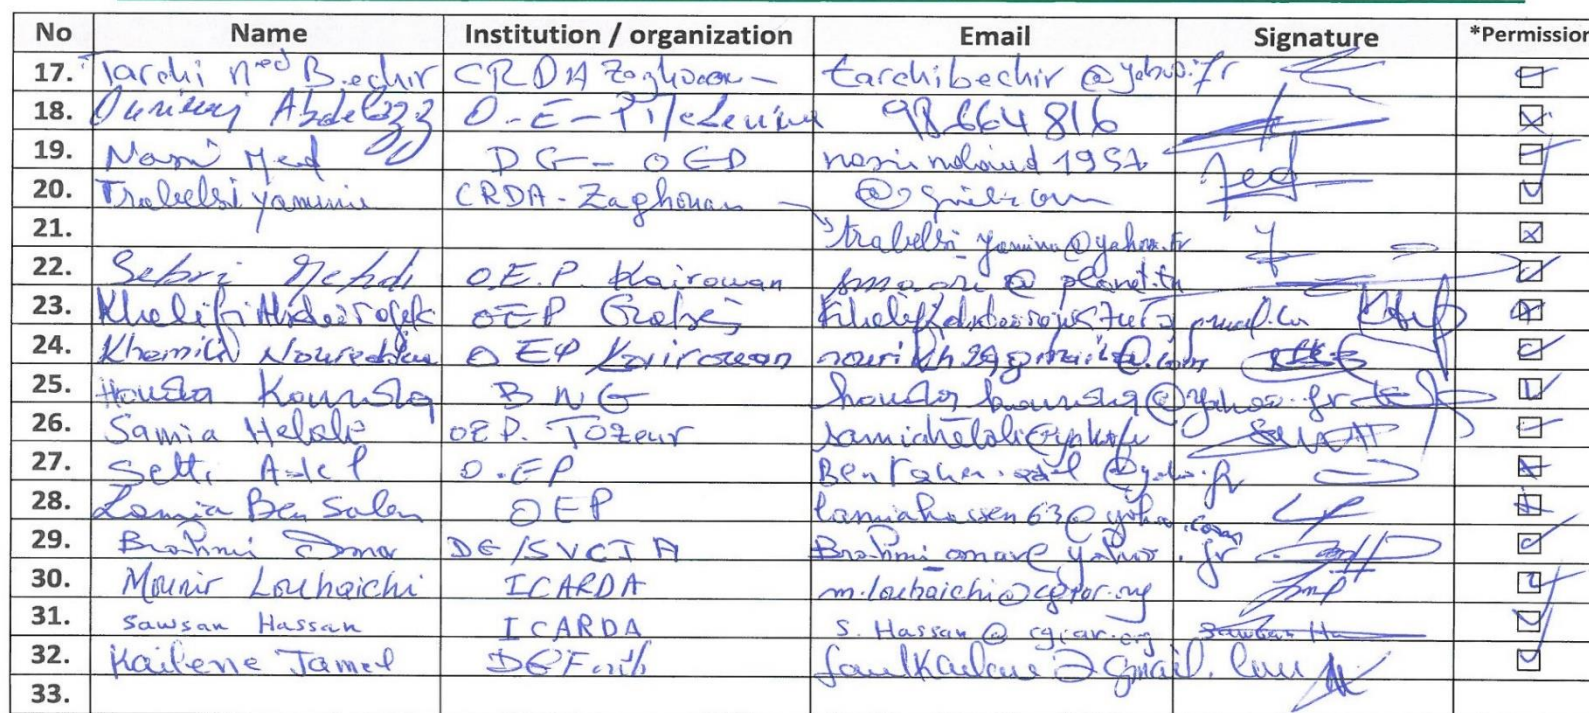 No Name Institution / organization Email Signature *Permission
17. Tarchi Med Bechir CRDA Zaghouan - tarchibechir @yahoo.fr
18. Abdelazz O-E-P 98664816
19. Nasri Med DG - OEP 1957
20. Trabelsi yamina CRDA - Zaghouan @gmail.com
21. trabelsi yamina@yahoo.fr
22. Sebri Mehdi O.E.P. Kairouan @ planet.tn
23. Khelifi OEP Gabes
24. Khemili Noureddine OEP Kairouan
25. Houda BNG @yahoo.fr
26. Samia Helali OEP. Tozeur
27. Setti Adel O.EP @yahoo.fr
28. Lamia Ben Salem OEP lamiahassen63@yahoo.com
29. Brahmi Omar DG/SVCTA Brahmi omar@yahoo.fr
30. Mounir Louhaichi ICARDA m.louhaichi@cgiar.org
31. Sawsan Hassan ICARDA S. Hassan @ cgiar.org Sawsan Ha
32. Kailene Jamel @ Gmail.com
33.